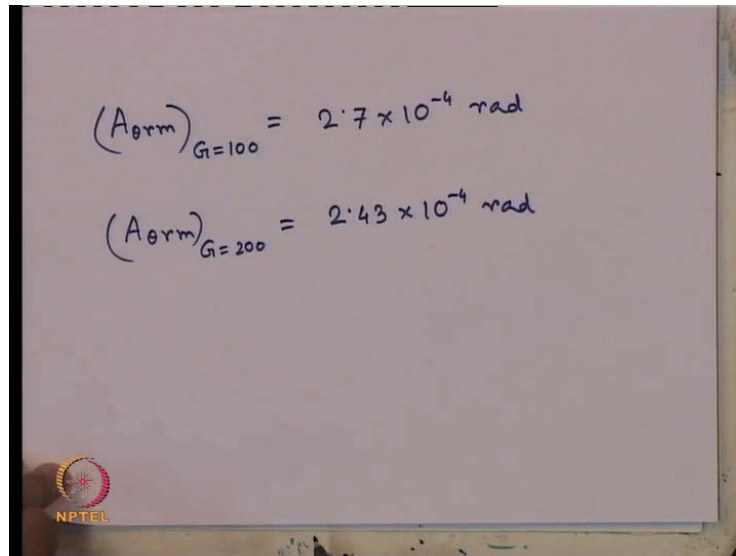 (Aθrm)G=100 = 2.7 × 10⁻⁴ rad
(Aθrm)G=200 = 2.43 × 10⁻⁴ rad
NPTEL